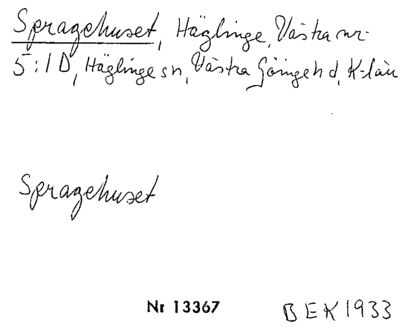 Spragehuset, Häglinge, Västra nr
5:1 D, Häglinge sn, Västra Göinge hd, K-län
Spragehuset
Nr 13367 BEK 1933